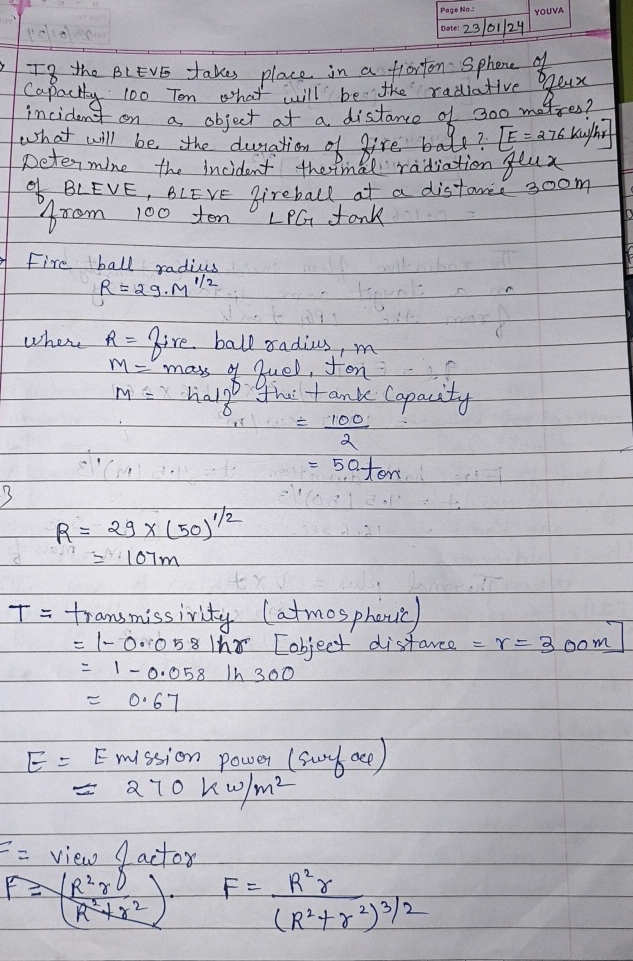 Page No.:
YOUVA
Date: 23/01/24
If the BLEVE takes place in a Horton Sphere of
Capacity 100 Ton what will be the radiative flux
incident on a object at a distance of 300 metres?
what will be the duration of fire ball? [E = 276 kw/hr]
Determine the incident thermal radiation flux
of BLEVE, BLEVE fireball at a distance 300m
from 100 ton LPG tank
Fire ball radius
R = 29.M^1/2
where R = fire ball radius, m
M = mass of fuel, ton
M = half the tank Capacity
= 100/2
= 50 ton
R = 29 x (50)^1/2
= 107m
T = transmissivity (atmospheric)
= 1-0.058 lhr [object distance = r = 300m]
= 1-0.058 lh 300
= 0.67
E = Emission power (surface)
= 270 kw/m2
F = view factor
F = R²r / (R²+r²)^3/2